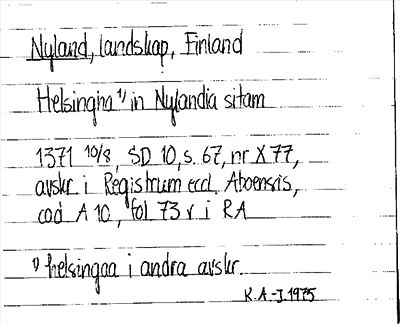 Nyland, landskap, Finland
Helsingha 1) in Nylandia sitam
1371 10/8, SD 10, s. 67, nr X 77,
avskr. i Registrum eccl. Aboensis,
cod A 10, fol 73 v i RA
1) helsingaa i andra avskr.
K.A.-J. 1975